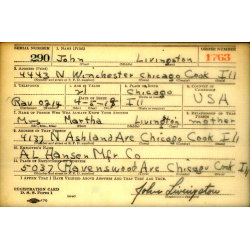 SERIAL NUMBER 1. NAME (Print) ORDER NUMBER
290 John Livingston 1763
2. ADDRESS (Print)
4443 N Winchester Chicago Cook Ill
3. TELEPHONE 4. AGE IN YEARS 5. PLACE OF BIRTH 6. COUNTRY OF CITIZENSHIP
Chicago
Rav 0214 4-5-18 Ill USA
7. NAME OF PERSON WHO WILL ALWAYS KNOW YOUR ADDRESS 8. RELATIONSHIP OF THAT PERSON
Mrs Martha Livingston mother
9. ADDRESS OF THAT PERSON
N Ashland Ave Chicago Cook Ill
10. EMPLOYER'S NAME
Al Hansen Mfr Co
11. PLACE OF EMPLOYMENT OR BUSINESS
5037 Ravenswood Ave Chicago Cook Ill
I AFFIRM THAT I HAVE VERIFIED ABOVE ANSWERS AND THAT THEY ARE TRUE.
REGISTRATION CARD
D. S. S. Form 1
John Livingston